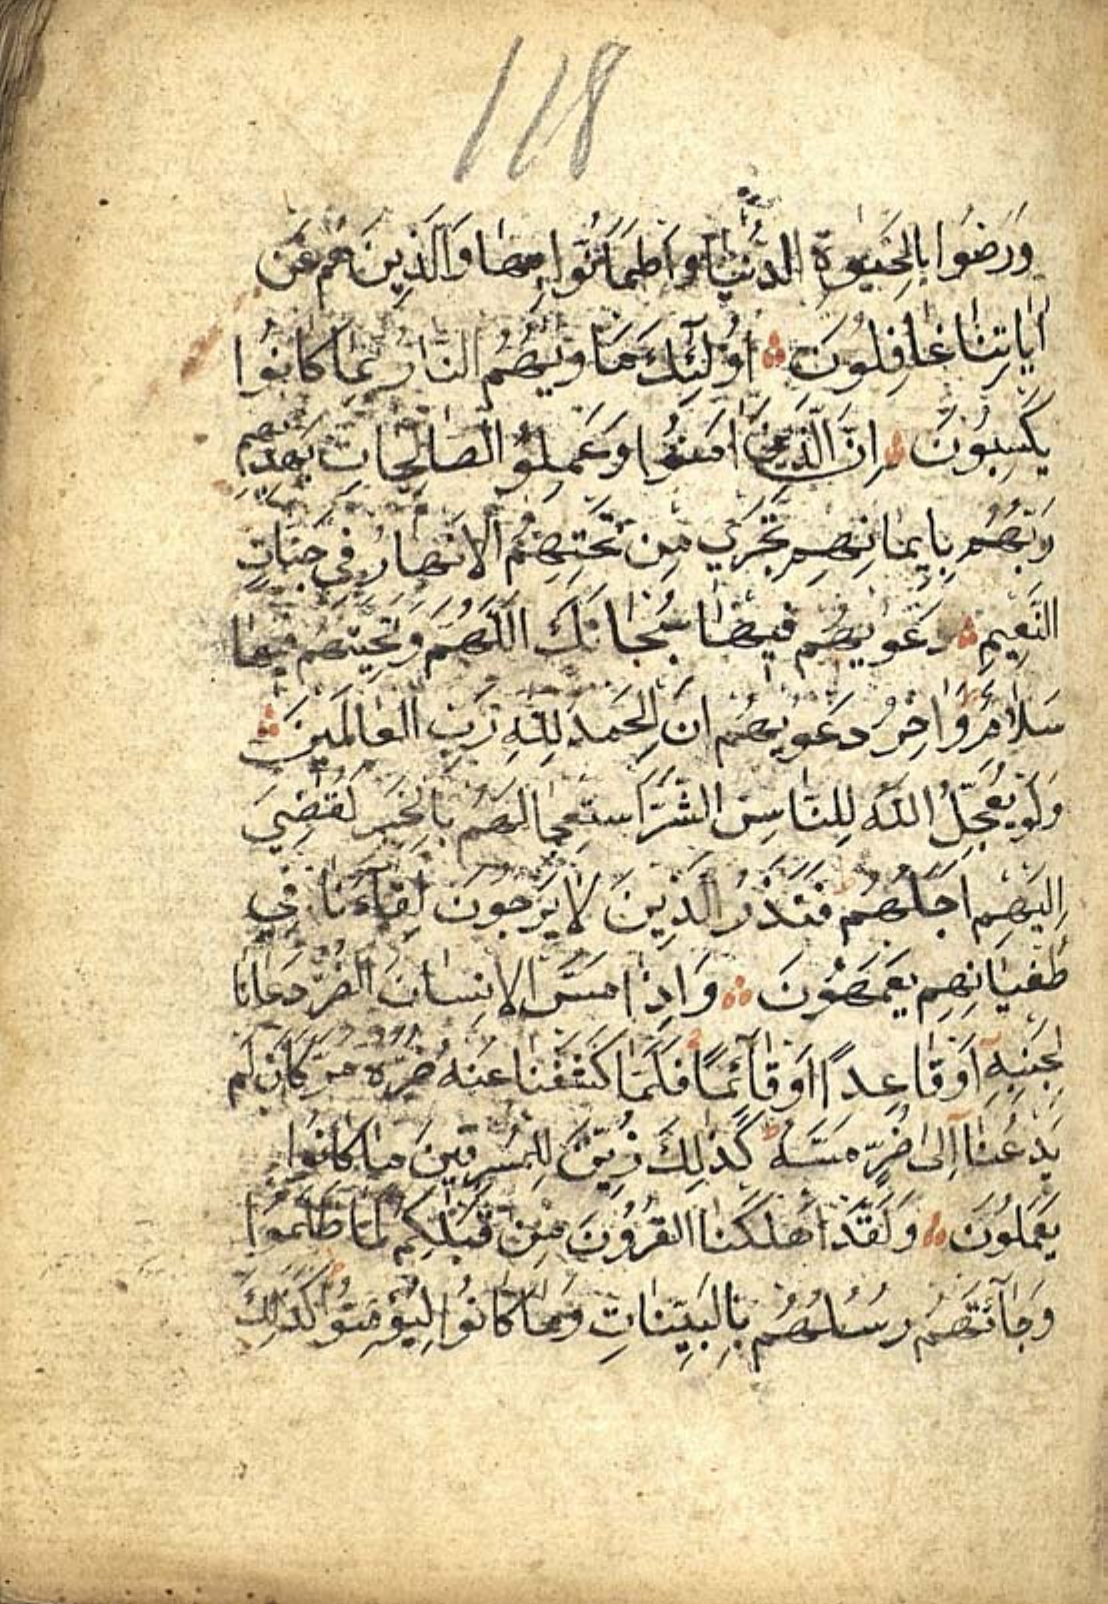 118
وَرَضُوا بِالْحَيٰوةِ الدُّنْيَا وَاطْمَاَنُّوا بِهَا وَالَّذِينَ هُمْ عَنْ
اٰيَاتِنَا غَافِلُونَ اُولٰٓئِكَ مَاْوٰيهُمُ النَّارُ بِمَا كَانُوا
يَكْسِبُونَ اِنَّ الَّذِينَ اٰمَنُوا وَعَمِلُوا الصَّالِحَاتِ يَهْدِيهِمْ
رَبُّهُمْ بِاِيمَانِهِمْ تَجْرِي مِنْ تَحْتِهِمُ الْاَنْهَارُ فِي جَنَّاتِ
النَّعِيمِ دَعْوٰيهُمْ فِيهَا سُبْحَانَكَ اللّٰهُمَّ وَتَحِيَّتُهُمْ فِيهَا
سَلَامٌ وَاٰخِرُ دَعْوٰيهُمْ اَنِ الْحَمْدُ لِلّٰهِ رَبِّ الْعَالَمِينَ
وَلَوْ يُعَجِّلُ اللّٰهُ لِلنَّاسِ الشَّرَّ اسْتِعْجَالَهُمْ بِالْخَيْرِ لَقُضِيَ
اِلَيْهِمْ اَجَلُهُمْ فَنَذَرُ الَّذِينَ لَا يَرْجُونَ لِقَاءَنَا فِي
طُغْيَانِهِمْ يَعْمَهُونَ وَاِذَا مَسَّ الْاِنْسَانَ الضُّرُّ دَعَانَا
لِجَنْبِهِ اَوْ قَاعِدًا اَوْ قَائِمًا فَلَمَّا كَشَفْنَا عَنْهُ ضُرَّهُ مَرَّ كَاَنْ لَمْ
يَدْعُنَا اِلٰى ضُرٍّ مَسَّهُ كَذٰلِكَ زُيِّنَ لِلْمُسْرِفِينَ مَا كَانُوا
يَعْمَلُونَ وَلَقَدْ اَهْلَكْنَا الْقُرُونَ مِنْ قَبْلِكُمْ لَمَّا ظَلَمُوا
وَجَاءَتْهُمْ رُسُلُهُمْ بِالْبَيِّنَاتِ وَمَا كَانُوا لِيُؤْمِنُوا كَذٰلِكَ